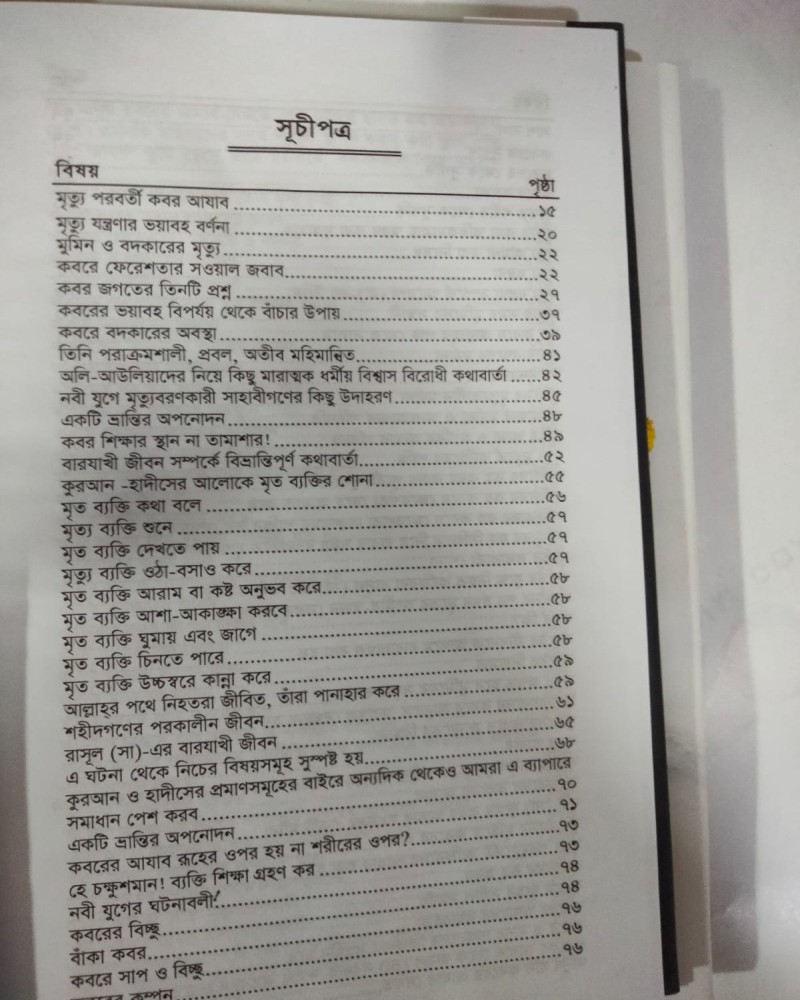 সূচীপত্র
বিষয় পৃষ্ঠা
মৃত্যু পরবর্তী কবর আযাব ..........১৫
মৃত্যু যন্ত্রণার ভয়াবহ বর্ণনা ..........২০
মুমিন ও বদকারের মৃত্যু..........২২
কবরে ফেরেশতার সওয়াল জবাব..........২২
কবর জগতের তিনটি প্রশ্ন ..........২৭
কবরের ভয়াবহ বিপর্যয় থেকে বাঁচার উপায় ..........৩৭
কবরে বদকারের অবস্থা ..........৩৯
তিনি পরাক্রমশালী, প্রবল, অতীব মহিমান্বিত..........৪১
অলি-আউলিয়াদের নিয়ে কিছু মারাত্মক ধর্মীয় বিশ্বাস বিরোধী কথাবার্তা ......৪২
নবী যুগে মৃত্যুবরণকারী সাহাবীগণের কিছু উদাহরণ ..........৪৫
একটি ভ্রান্তির অপনোদন..........৪৮
কবর শিক্ষার স্থান না তামাশার! ..........৪৯
বারযাখী জীবন সম্পর্কে বিভ্রান্তিপূর্ণ কথাবার্তা..........৫২
কুরআন -হাদীসের আলোকে মৃত ব্যক্তির শোনা ..........৫৫
মৃত ব্যক্তি কথা বলে ..........৫৬
মৃত্য ব্যক্তি শুনে ..........৫৭
মৃত ব্যক্তি দেখতে পায় ..........৫৭
মৃত্যু ব্যক্তি ওঠা-বসাও করে ..........৫৭
মৃত ব্যক্তি আরাম বা কষ্ট অনুভব করে..........৫৮
মৃত ব্যক্তি আশা-আকাঙ্ক্ষা করবে ..........৫৮
মৃত ব্যক্তি ঘুমায় এবং জাগে ..........৫৮
মৃত ব্যক্তি চিনতে পারে ..........৫৮
মৃত ব্যক্তি উচ্চস্বরে কান্না করে ..........৫৯
আল্লাহ্‌র পথে নিহতরা জীবিত, তাঁরা পানাহার করে ..........৫৯
শহীদগণের পরকালীন জীবন..........৬১
রাসূল (সা)-এর বারযাখী জীবন ..........৬৫
এ ঘটনা থেকে নিচের বিষয়সমূহ সুস্পষ্ট হয়..........৬৮
কুরআন ও হাদীসের প্রমাণসমূহের বাইরে অন্যদিক থেকেও আমরা এ ব্যাপারে
সমাধান পেশ করব ..........৭০
একটি ভ্রান্তির অপনোদন ..........৭১
কবরের আযাব রূহের ওপর হয় না শরীরের ওপর?..........৭৩
হে চক্ষুশমান! ব্যক্তি শিক্ষা গ্রহণ কর ..........৭৩
নবী যুগের ঘটনাবলী!..........৭৪
কবরের বিচ্ছু..........৭৪
বাঁকা কবর..........৭৬
কবরে সাপ ও বিচ্ছু..........৭৬
কম্পন ..........৭৬